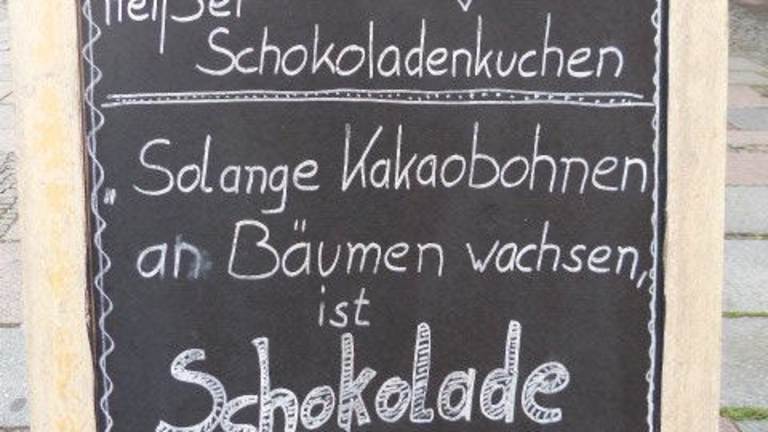 Heißer
Schokoladenkuchen
„Solange Kakaobohnen
an Bäumen wachsen,
ist
Schokolade